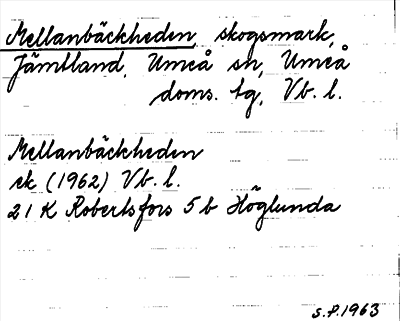 Mellanbäckheden, skogsmark,
Jämtland, Umeå sn, Umeå
doms. tg, Vb. l.
Mellanbäckheden
ek (1962) Vb. l.
21 K Robertsfors 5 b Höglunda
S.P. 1963